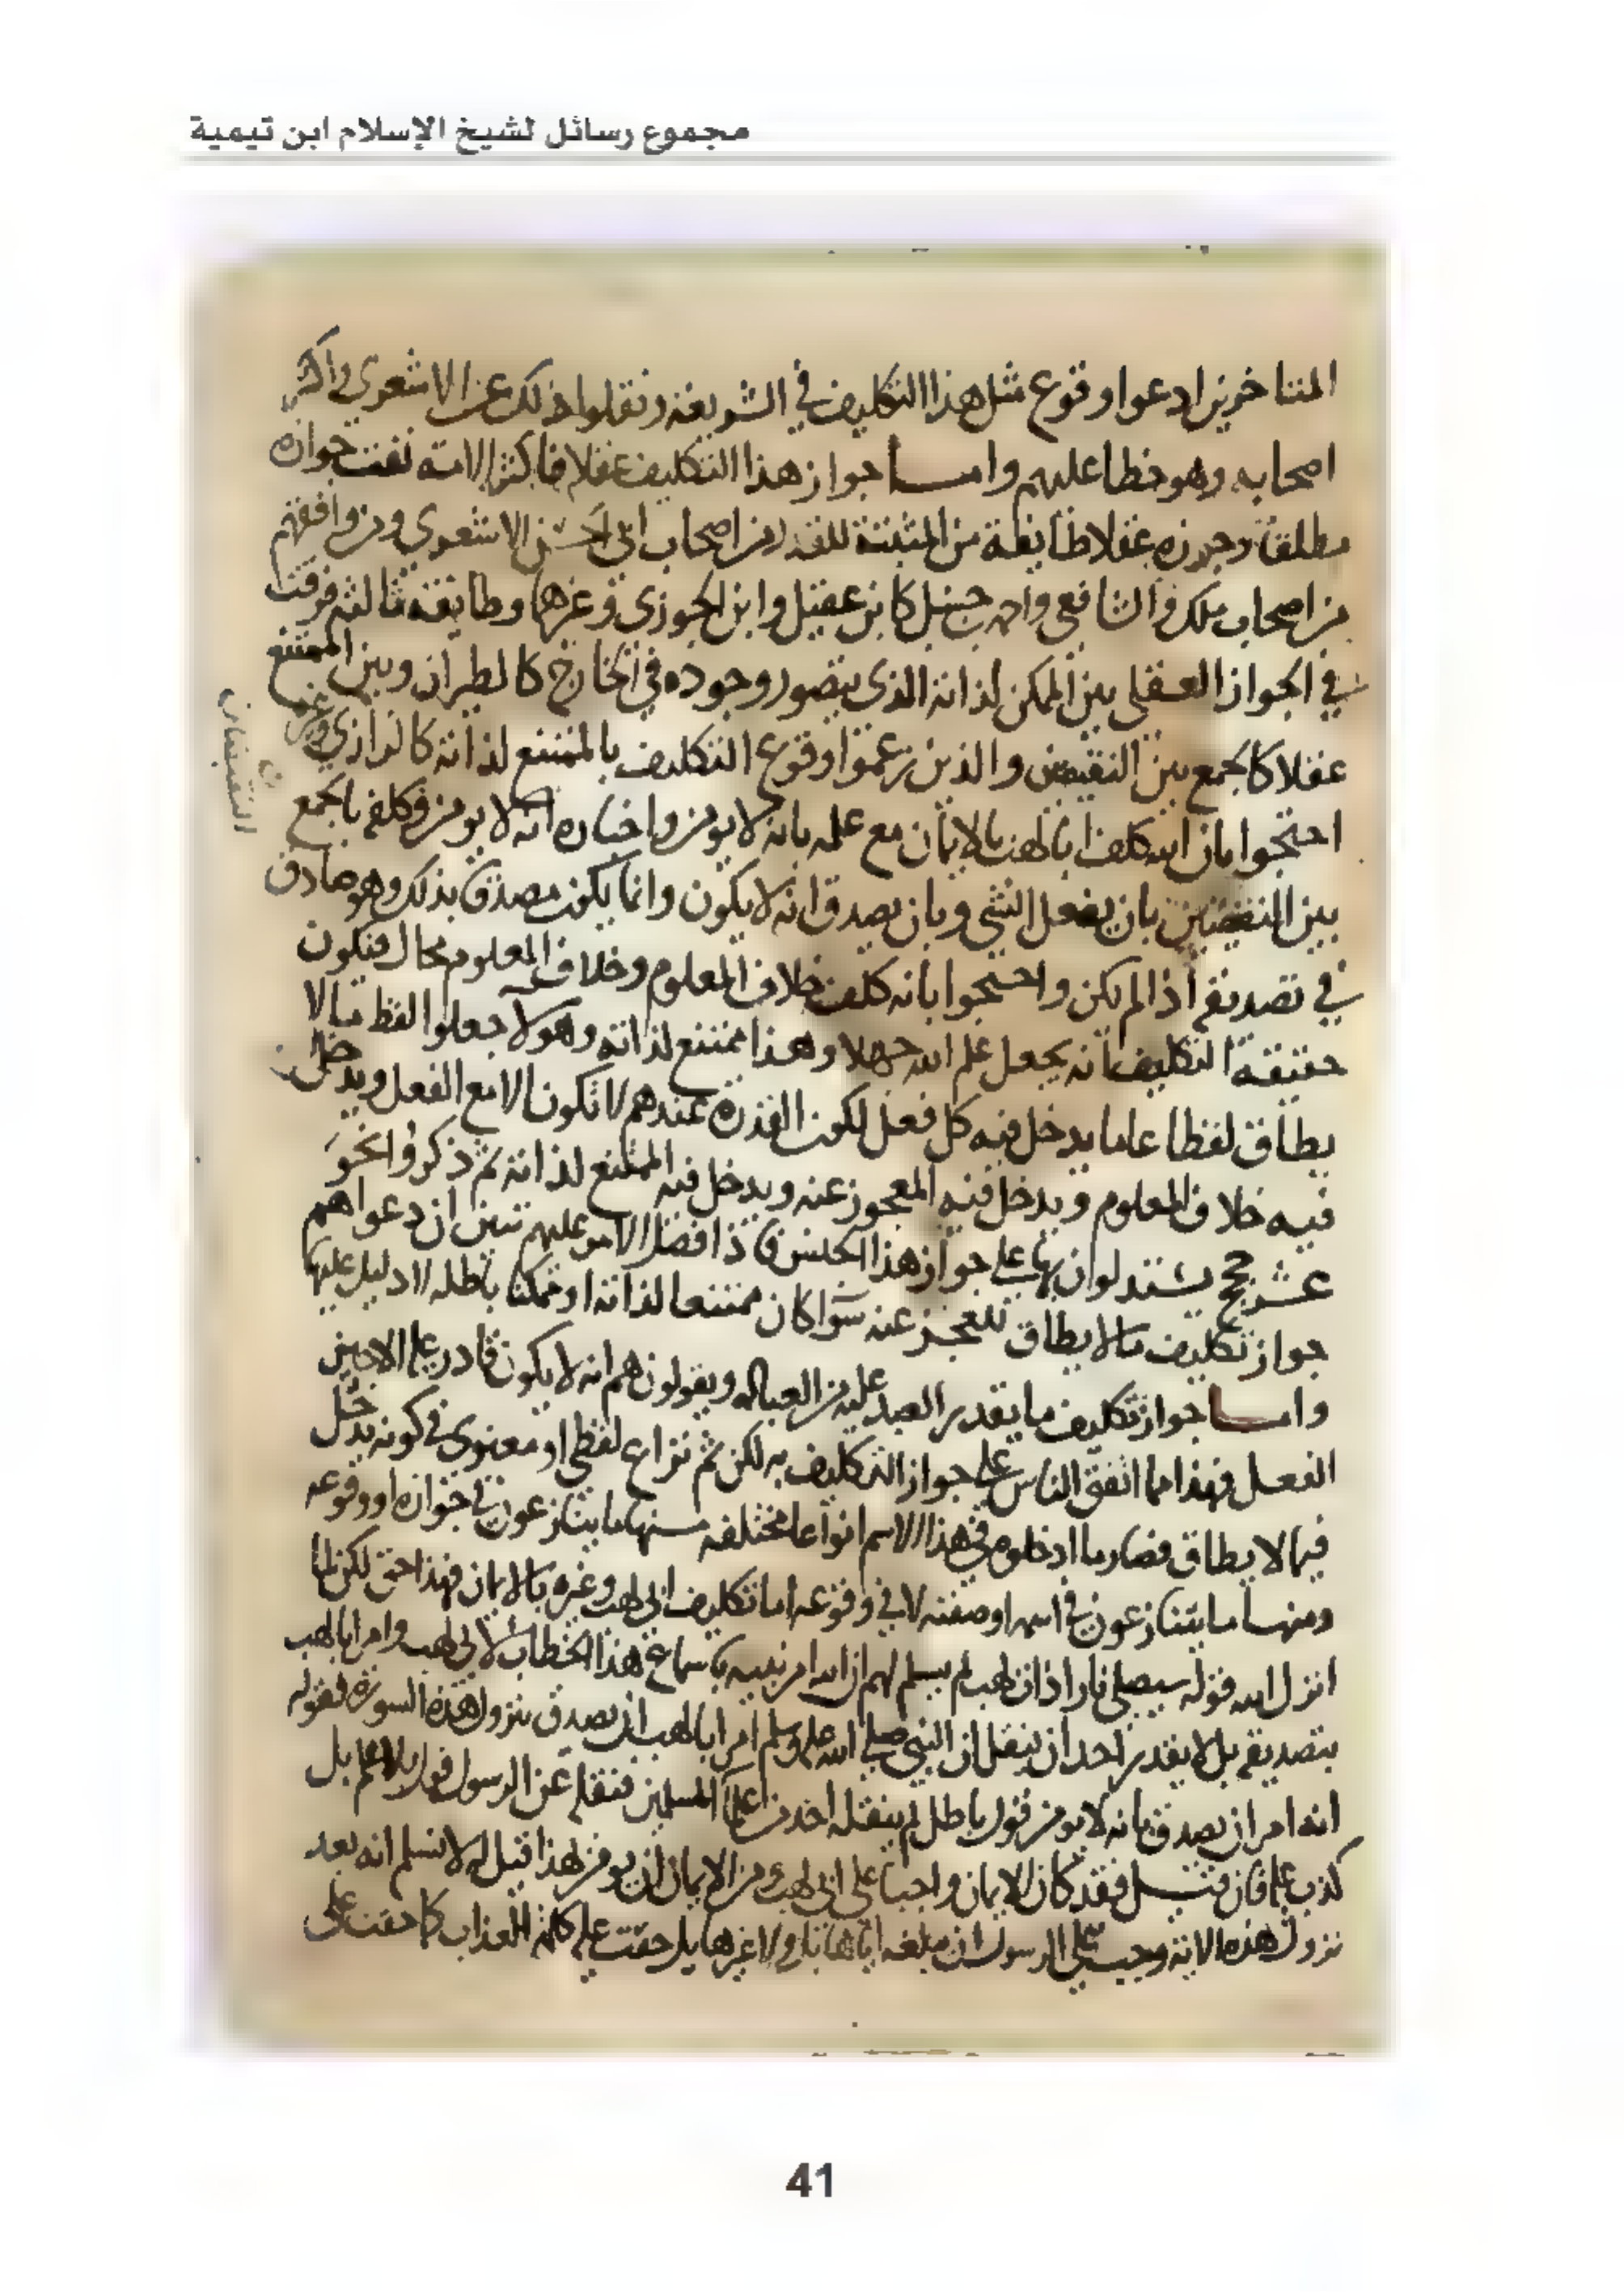 مجموع رسائل لشيخ الإسلام ابن تيمية
المتاخرين ادعوا وقوع مثل هذا التكليف في الشريعه ونقلوا ذلك عن الاشعري واكثر
اصحابه وهو خطا عليهم واما جواز هذا التكليف عقلا فاكثر الامه نفت جوازه
مطلقا وجوزه عقلا طايفة من المثبتة للقدر من اصحاب ابي الحسن الاشعري ومن وافقهم
من اصحاب ملك والشافعي واحمد بن حنبل كابن عقيل وابن الجوزي وغيرهما وطايفه ثالثه فرقت
في الجواز العقلي بين الممكن لذاته الذي يتصور وجوده في الخارج كالطيران وبين الممتنع
عقلا كالجمع بين النقيضين والذين زعموا وقوع التكليف بالممتنع لذاته كالرازي وغيره
النقيضين
احتجوا بان الله كلف ابا لهب بالايمان مع علمه بانه لا يومن واخباره انه لا يومن وكلفه بالجمع
بين النقيضين بان يفعل الشي وبان يصدق انه لا يكون وانما يكون مصدق بذلك وهو صادق
في تصديقه اذا لم يكن واحتجوا بانه كلف خلاف المعلوم وخلاف المعلوم محال فيكون
حقيقة التكليف انه يجعل علم الله جهلا وهذا ممتنع لذاته وهولا جعلوا لفظ ما لا
يطاق لفظا عاما يدخل فيه كل فعل لكون القدره عندهم لا تكون الا مع الفعل ويدخل
فيه خلاف المعلوم ويدخل فيه المعجوز عنه ويدخل فيه الممتنع لذاته ثم ذكروا نحو
عشر حجج يستدلوان بها على جواز هذا الجنس فاذا فصل الامر عليهم تبين ان دعواهم
جواز تكليف ما لا يطاق للعجز عنه سوا كان ممتنعا لذاته او ممكنا باطله لا دليل عليها
واما جواز تكليف ما يقدر العبد عليه من العباده ويقولون هم انه لا يكون قادر عليه الا حين
الفعل فهذا مما اتفق الناس على جواز التكليف به لكن ثم نزاع لفظي او معنوي في كونه يدخل
فيما لا يطاق فصار ما ادخلوه في هذا الاسم انواعا مختلفه منها ما يتنازعون في جوازه او وقوعه
ومنها ما يتنازعون في اسمه او صفته لا في وقوعه اما تكليف ابي لهب وغيره بالايمان فهذا حق لكن لما
انزل الله قوله سيصلى نارا ذات لهب لم يسلم لهم ان الله امر نبيه باسماع هذا الخطاب لابي لهب وامر ابا لهب
بتصديقه بل لا يقدر احد ان ينقل ان النبي صلى الله عليه وسلم امر ابا لهب ان يصدق بنزول هذه السوره فقوله
انه امر ان يصدق بانه لا يومن قول باطل لم ينقله احد من علما المسلمين فنقله عن الرسول قول بلا علم بل
كذب عليه فان قيل فقد كان الايمان واجبا على ابي لهب ومن الايمان ان يومن بهذا قيل له لا نسلم انه بعد
نزول هذه الاية وجب على الرسول ان يبلغه اياها بل ولا غيرها بل حقت عليه كلمة العذاب كما حقت على
41